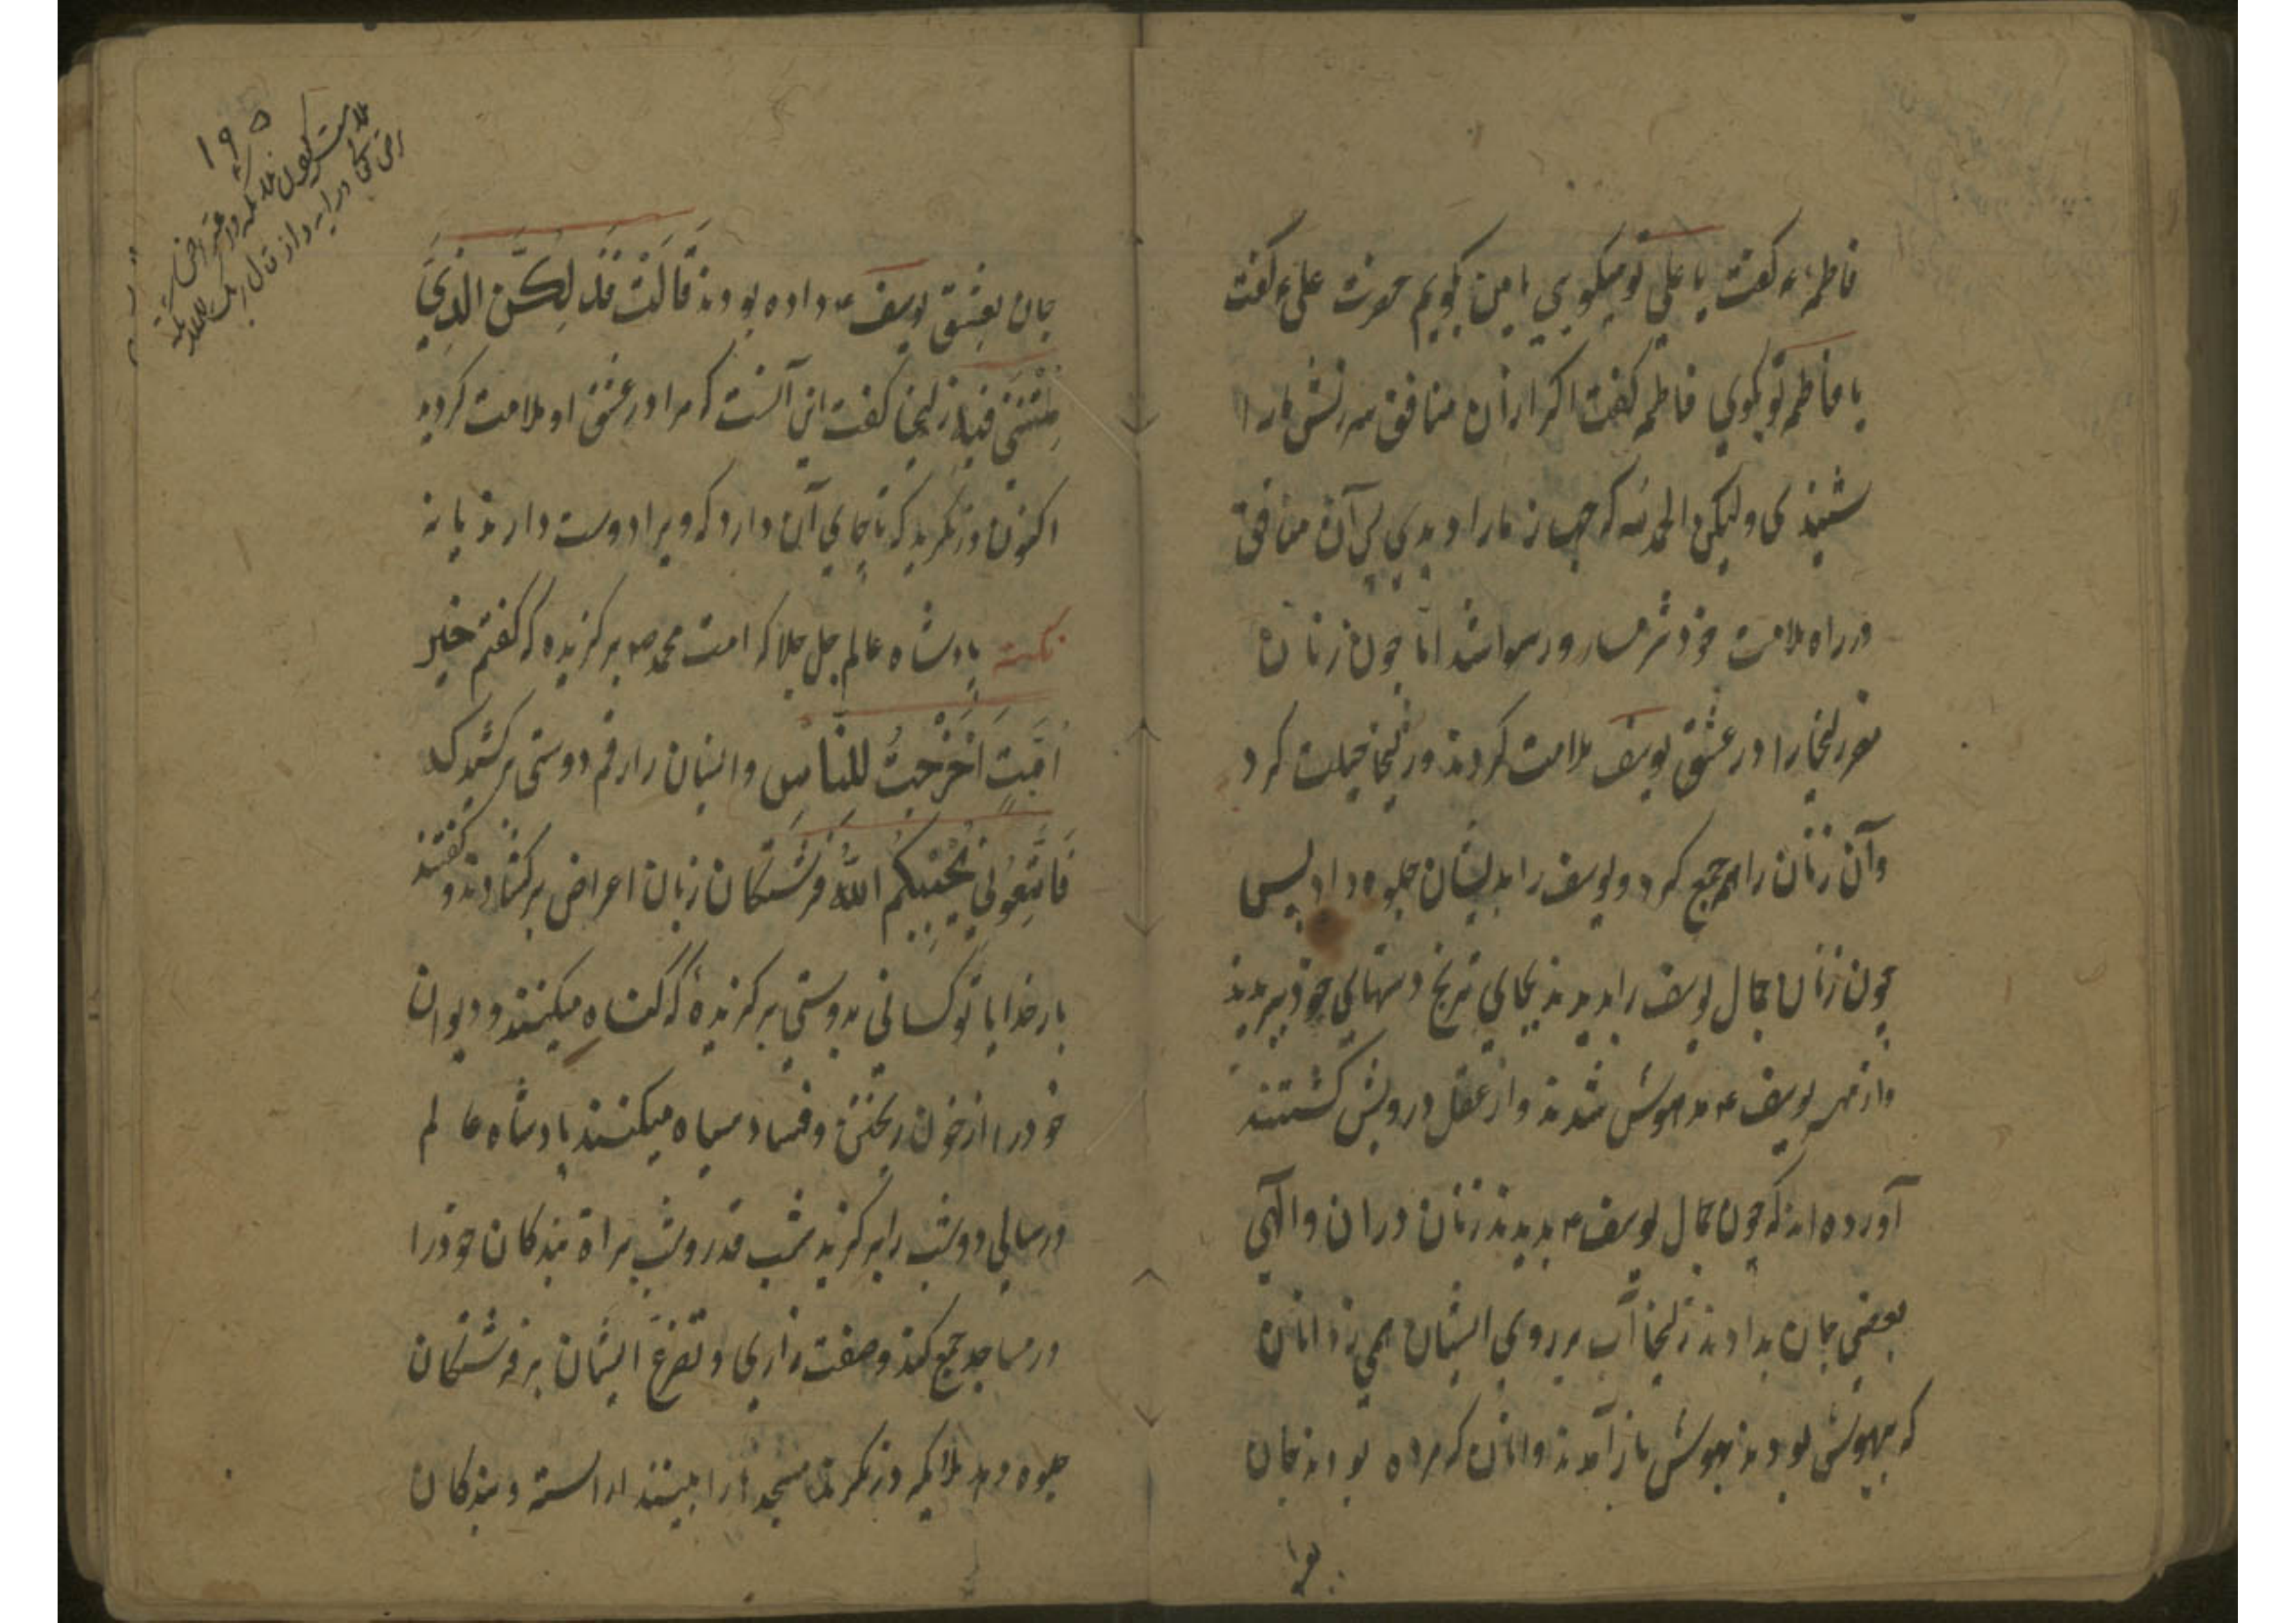 فاطمه ء گفت یا علی تو میکویی یا من بکویم حضرت علی ء گفت
یا فاطمه تو بکوی فاطمه گفت اگر از آن منافق سرزنش ما را
شنیدی ولیکن الحمد لله که جهاز ما را دیدی پس آن منافق
در راه ملامت خود شرمسار و رسوا شد اما چون زنان
مصر زلیخا را در عشق یوسف ملامت کردند و زلیخا حیلت کرد
وآن زنان را هم جمع کرد و یوسف را بدیشان جلوه داد پس
چون زنان جمال یوسف را بدیدند بجای ترنج دستهای خود ببریدند
واز مهر یوسف ع مدهوش شدند و از عقل درویش کشتند
آورده اند که چون جمال یوسف ع بدیدند زنان دران والهی
بعضی جان بدادند زلیخا آب بر روی ایشان همی زد انان
که بیهوش بودند بهوش باز آمدند وانان که مرده بودند جان
۱۹۵
جان بعشق یوسف ع داده بودند قَالَتْ فَذَلِكُنَّ الَّذِي
لُمْتُنَّنِي فِيهِ زلیخا گفت این آنست که مرا در عشق او ملامت کردید
اکنون در نکرید که تا جای آن دارد که ویرا دوست دارند یا نه
نکته پادشاه عالم جل جلا که امت محمد ص برکزیده که گفتم خیر
اُمَّتٍ اُخْرِجَتْ لِلنَّاسِ وایشان را رقم دوستی برکشید که
فَاتَّبِعُونِي يُحْبِبْكُمُ اللَّهُ فرشتکان زبان اعراض برکشادند و گفتند
بار خدایا تو کسانی بدوستی برکزیدهٔ که کناه میکنند و دیوان
خود را از خون ریختن و فساد سیاه میکنند پادشاه عالم
در سالی دو شب را برکزید شب قدر و شب براة بندکان خود را
در مساجد جمع کند وصفت زاری و تضرع ایشان بر فرشتکان
جلوه دهد ملایکه در نکرند مسجدها را بینند اراسته و بندکان